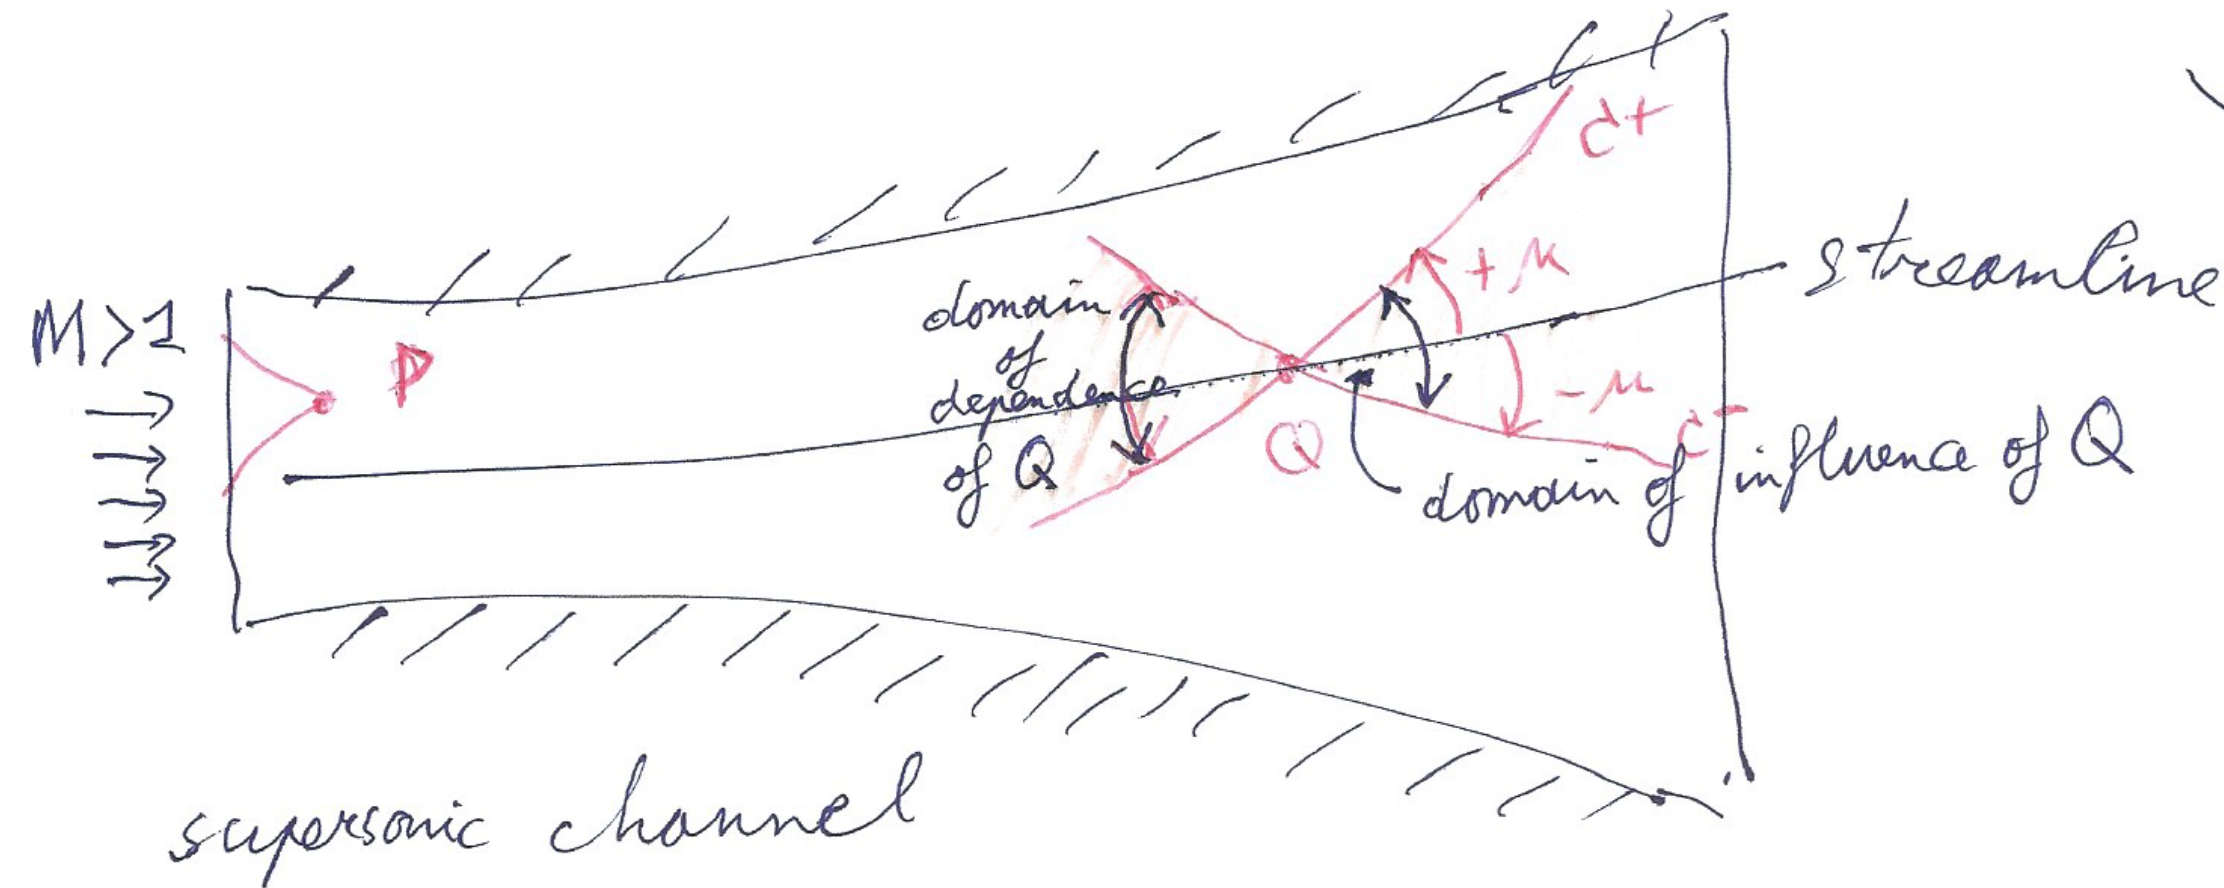 M>1
P
domain
of
dependence
of Q
Q
C+
+μ
-μ
C-
streamline
domain of influence of Q
supersonic channel